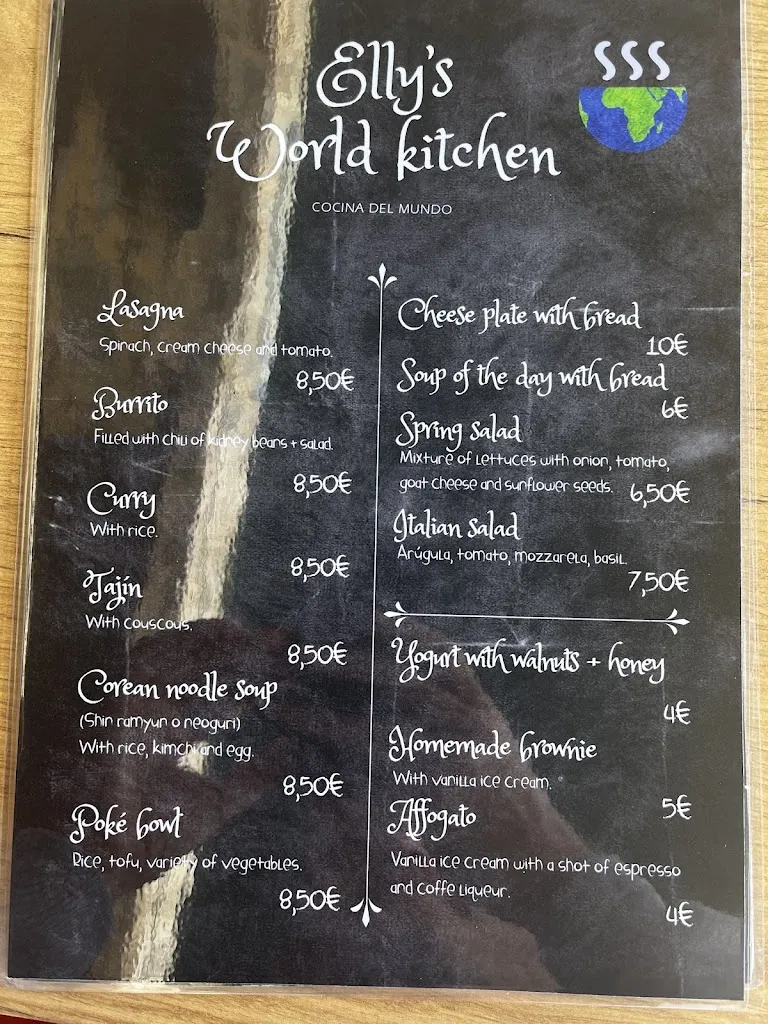 Elly's
World kitchen
COCINA DEL MUNDO
Lasagna
Spinach, cream cheese and tomato.
8,50€
Burrito
Filled with chili of kidney beans + salad.
8,50€
Curry
With rice.
8,50€
Tajín
With couscous.
8,50€
Corean noodle soup
(Shin ramyun o neoguri)
With rice, kimchi and egg.
8,50€
Poké bowl
Rice, tofu, variety of vegetables.
8,50€
Cheese plate with bread
10€
Soup of the day with bread
6€
Spring salad
Mixture of lettuces with onion, tomato,
goat cheese and sunflower seeds.
6,50€
Italian salad
Arúgula, tomato, mozzarela, basil.
7,50€
Yogurt with walnuts + honey
4€
Homemade brownie
With vanilla ice cream.
5€
Affogato
Vanilla ice cream with a shot of espresso
and coffe liqueur.
4€